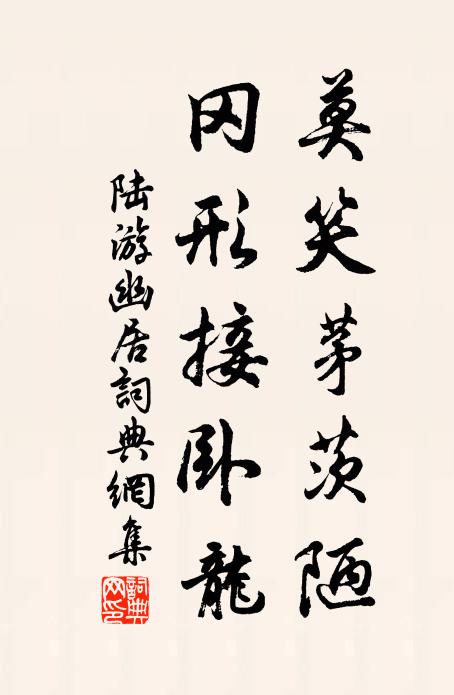 莫笑茅茨陋
冈形接卧龍
陆游幽居詞典網集
詞典网印